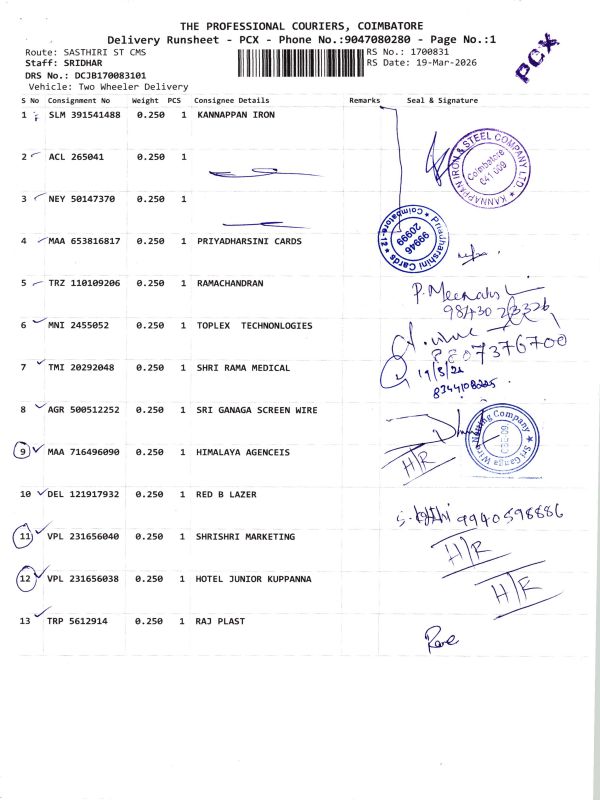 THE PROFESSIONAL COURIERS, COIMBATORE
Delivery Runsheet - PCX - Phone No.:9047080280 - Page No.:1
Route: SASTHIRI ST CMS
RS No.: 1700831
Staff: SRIDHAR
RS Date: 19-Mar-2026
DRS No.: DCJB170083101
Vehicle: Two Wheeler Delivery
PCX
S No Consignment No Weight PCS Consignee Details Remarks Seal & Signature
1 SLM 391541488 0.250 1 KANNAPPAN IRON
KANNAPPAN IRON & STEEL COMPANY LTD.
Coimbatore
641 009
2 ACL 265041 0.250 1
3 NEY 50147370 0.250 1
4 MAA 653816817 0.250 1 PRIYADHARSINI CARDS
Priadharshini Cards
Coimbatore-12
99946
20999
5 TRZ 110109206 0.250 1 RAMACHANDRAN
P. Meenakshi
6 MNI 2455052 0.250 1 TOPLEX TECHNONLOGIES
8807376700
7 TMI 20292048 0.250 1 SHRI RAMA MEDICAL
8344108225
8 AGR 500512252 0.250 1 SRI GANAGA SCREEN WIRE
Sri Ganga Wire Netting Company
CBE-09
9 MAA 716496090 0.250 1 HIMALAYA AGENCEIS
H/R
10 DEL 121917932 0.250 1 RED B LAZER
9940598886
11 VPL 231656040 0.250 1 SHRISHRI MARKETING
H/R
12 VPL 231656038 0.250 1 HOTEL JUNIOR KUPPANNA
H/R
13 TRP 5612914 0.250 1 RAJ PLAST